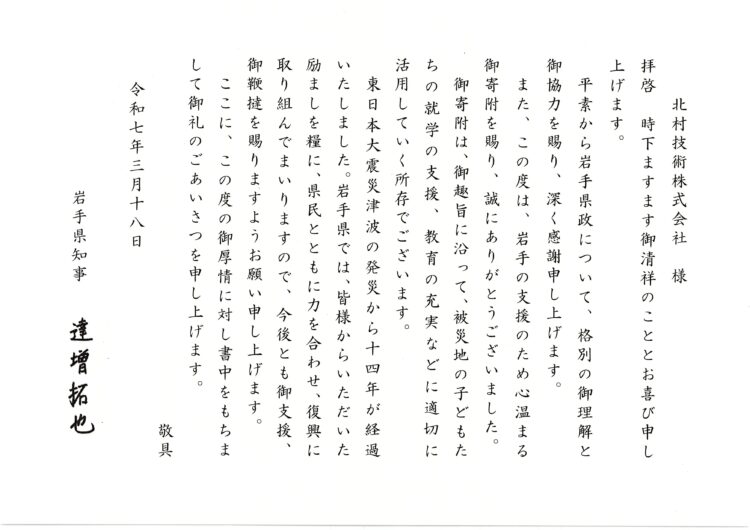 北村技術株式会社　様
拝啓　時下ますます御清祥のこととお喜び申し
上げます。
平素から岩手県政について、格別の御理解と
御協力を賜り、深く感謝申し上げます。
また、この度は、岩手の支援のため心温まる
御寄附を賜り、誠にありがとうございました。
御寄附は、御趣旨に沿って、被災地の子どもた
ちの就学の支援、教育の充実などに適切に
活用していく所存でございます。
東日本大震災津波の発災から十四年が経過
いたしました。岩手県では、皆様からいただいた
励ましを糧に、県民とともに力を合わせ、復興に
取り組んでまいりますので、今後とも御支援、
御鞭撻を賜りますようお願い申し上げます。
ここに、この度の御厚情に対し書中をもちま
して御礼のごあいさつを申し上げます。
敬具
令和七年三月十八日
岩手県知事　達増拓也